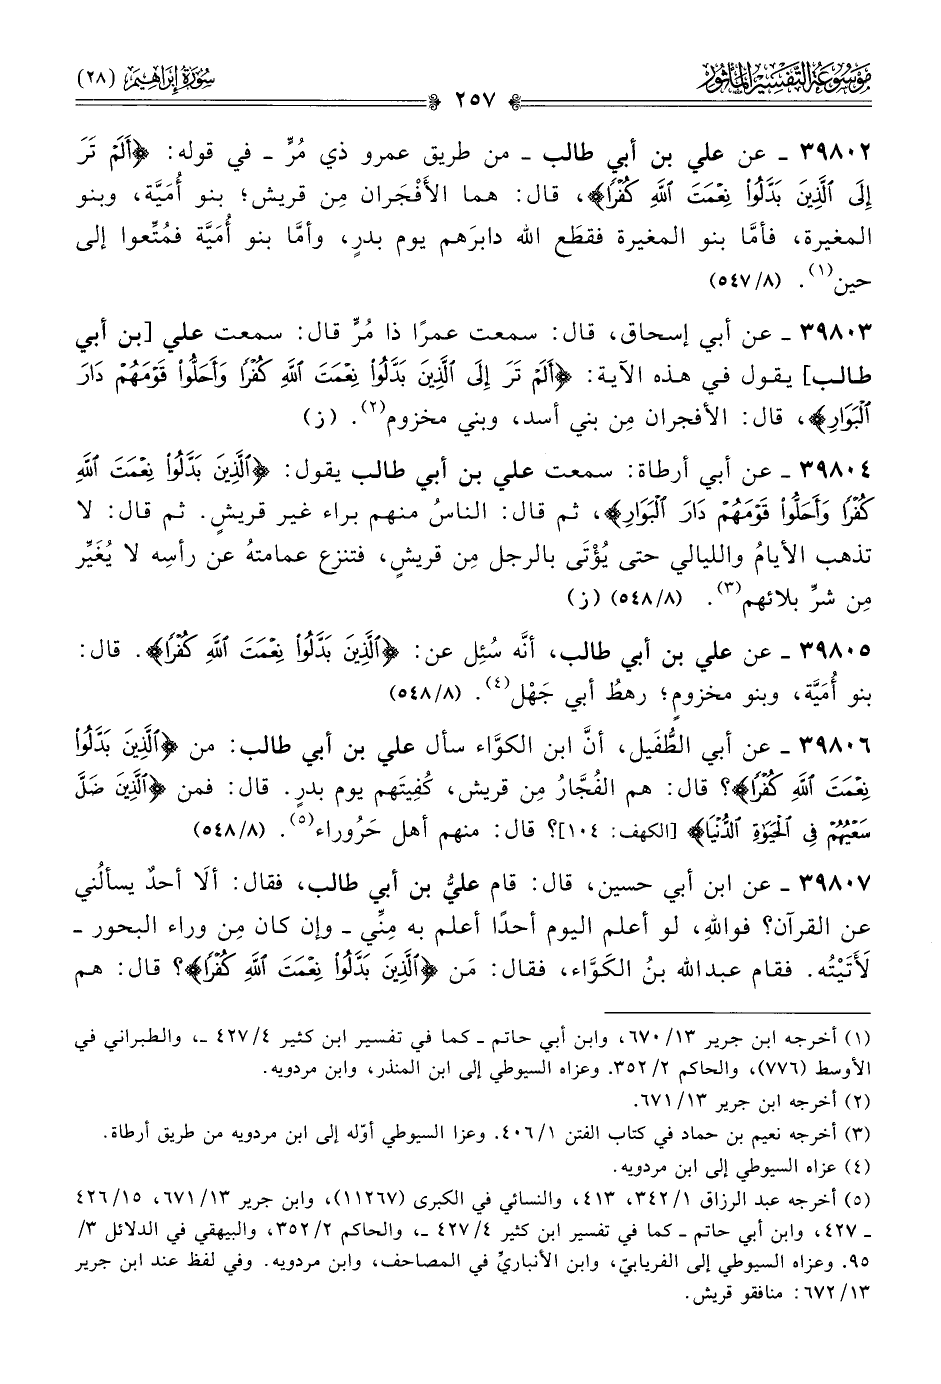 مَوْسُوعَةُ التَّفْسِيْرِ المَأْثُورِ
سُورَةُ إِبْرَاهِيمَ (٢٨)
٢٥٧
٣٩٨٠٢ ـ عن علي بن أبي طالب ـ من طريق عمرو ذي مُرٍّ ـ في قوله: ﴿أَلَمْ تَرَ
إِلَى ٱلَّذِينَ بَدَّلُوا۟ نِعْمَتَ ٱللَّهِ كُفْرًا﴾، قال: هما الأَفْجَران مِن قريش؛ بنو أُمَيَّة، وبنو
المغيرة، فأمَّا بنو المغيرة فقطَع الله دابرَهم يوم بدرٍ، وأمَّا بنو أُمَيَّة فمُتِّعوا إلى
حين(١). (٥٤٧/٨)
٣٩٨٠٣ ـ عن أبي إسحاق، قال: سمعت عمرًا ذا مُرٍّ قال: سمعت علي [بن أبي
طالب] يقول في هذه الآية: ﴿أَلَمْ تَرَ إِلَى ٱلَّذِينَ بَدَّلُوا۟ نِعْمَتَ ٱللَّهِ كُفْرًا وَأَحَلُّوا۟ قَوْمَهُمْ دَارَ
ٱلْبَوَارِ﴾، قال: الأفجران مِن بني أسد، وبني مخزوم(٢). (ز)
٣٩٨٠٤ ـ عن أبي أرطاة: سمعت علي بن أبي طالب يقول: ﴿ٱلَّذِينَ بَدَّلُوا۟ نِعْمَتَ ٱللَّهِ
كُفْرًا وَأَحَلُّوا۟ قَوْمَهُمْ دَارَ ٱلْبَوَارِ﴾، ثم قال: الناسُ منهم براء غير قريشٍ. ثم قال: لا
تذهب الأيامُ والليالي حتى يُؤْتَى بالرجل مِن قريشٍ، فتنزع عمامتهُ عن رأسِه لا يُغَيِّر
مِن شرِّ بلائهم(٣). (٥٤٨/٨) (ز)
٣٩٨٠٥ ـ عن علي بن أبي طالب، أنَّه سُئِل عن: ﴿ٱلَّذِينَ بَدَّلُوا۟ نِعْمَتَ ٱللَّهِ كُفْرًا﴾. قال:
بنو أُمَيَّة، وبنو مخزومٍ؛ رهطُ أبي جَهْل(٤). (٥٤٨/٨)
٣٩٨٠٦ ـ عن أبي الطُّفَيل، أنَّ ابن الكوَّاء سأل علي بن أبي طالب: من ﴿ٱلَّذِينَ بَدَّلُوا۟
نِعْمَتَ ٱللَّهِ كُفْرًا﴾؟ قال: هم الفُجَّارُ مِن قريش، كُفِيتَهم يوم بدرٍ. قال: فمن ﴿ٱلَّذِينَ ضَلَّ
سَعْيُهُمْ فِى ٱلْحَيَوٰةِ ٱلدُّنْيَا﴾ [الكهف: ١٠٤]؟ قال: منهم أهل حَرُوراء(٥). (٥٤٨/٨)
٣٩٨٠٧ ـ عن ابن أبي حسين، قال: قام عليُّ بن أبي طالب، فقال: ألَا أحدٌ يسألُني
عن القرآن؟ فواللهِ، لو أعلم اليوم أحدًا أعلم به مِنِّي ـ وإن كان مِن وراء البحور ـ
لَأَتَيْتُه. فقام عبدالله بنُ الكَوَّاء، فقال: مَن ﴿ٱلَّذِينَ بَدَّلُوا۟ نِعْمَتَ ٱللَّهِ كُفْرًا﴾؟ قال: هم
(١) أخرجه ابن جرير ١٣/ ٦٧٠، وابن أبي حاتم ـ كما في تفسير ابن كثير ٤/ ٤٢٧ ـ، والطبراني في
الأوسط (٧٧٦)، والحاكم ٢/ ٣٥٢. وعزاه السيوطي إلى ابن المنذر، وابن مردويه.
(٢) أخرجه ابن جرير ١٣/ ٦٧١.
(٣) أخرجه نعيم بن حماد في كتاب الفتن ١/ ٤٠٦. وعزا السيوطي أوّله إلى ابن مردويه من طريق أرطاة.
(٤) عزاه السيوطي إلى ابن مردويه.
(٥) أخرجه عبد الرزاق ١/ ٣٤٢، ٤١٣، والنسائي في الكبرى (١١٢٦٧)، وابن جرير ١٣/ ٦٧١، ١٥/ ٤٢٦
ـ ٤٢٧، وابن أبي حاتم ـ كما في تفسير ابن كثير ٤/ ٤٢٧ ـ، والحاكم ٢/ ٣٥٢، والبيهقي في الدلائل ٣/
٩٥. وعزاه السيوطي إلى الفريابيّ، وابن الأنباريِّ في المصاحف، وابن مردويه. وفي لفظ عند ابن جرير
١٣/ ٦٧٢: منافقو قريش.